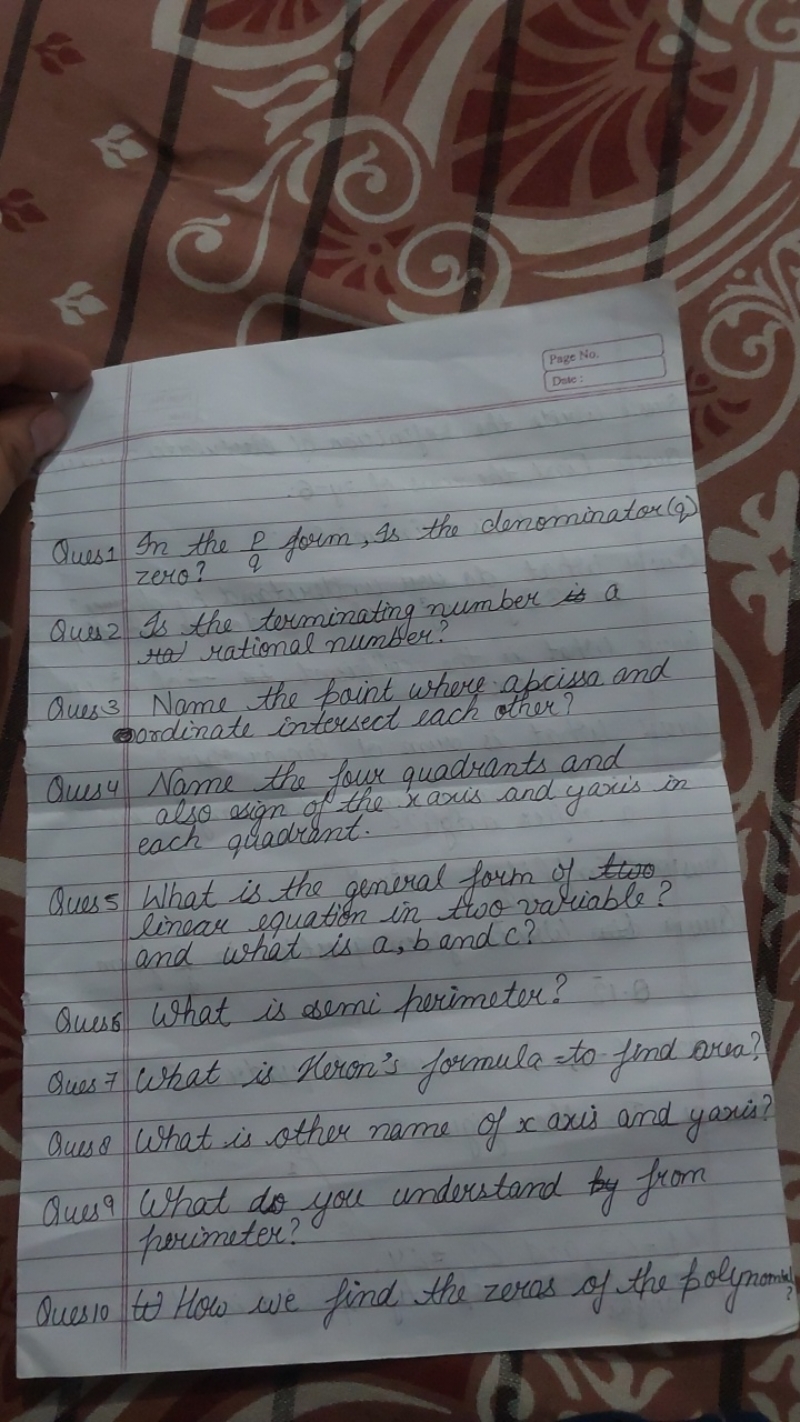 Page No.
Date :
Ques1 In the p/q form, Is the denominator(q)
zero?
Ques2 Is the terminating number is a
ra rational number?
Ques3 Name the point where abcissa and
oordinate intersect each other?
Ques4 Name the four quadrants and
also sign of the x axis and yaxis in
each quadrant.
Ques5 What is the general form of two
linear equation in two variable?
and what is a, b and c?
Ques6 What is semi perimeter?
Ques7 What is Heron's formula to find area?
Ques8 What is other name of x axis and yaxis?
Ques9 What do you understand by from
perimeter?
Ques10 How we find the zeros of the polynomial?